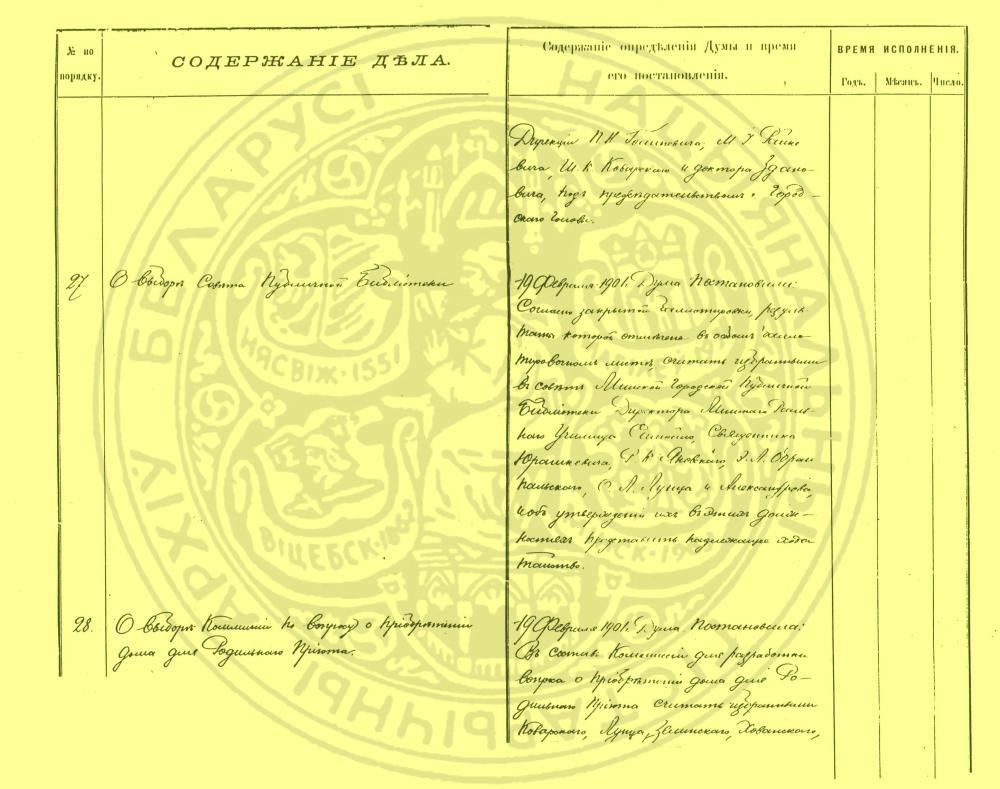 № по порядку.
СОДЕРЖАНІЕ ДѢЛА.
Содержаніе опредѣленія Думы и время
его постановленія.
ВРЕМЯ ИСПОЛНЕНІЯ.
Годъ. Мѣсяцъ. Число.
Дирекціи П Н
вича, Ш. К Коварскаго и доктора Здано-
вича, подъ предсѣдательствомъ Город-
скаго Головы.
27. О выборѣ Совѣта Публичной Библіотеки
19 Февраля 1901. Дума Постановила:
Согласно закрытой баллотировки, резуль-
таты которой отмѣчены въ особомъ балло
тировочномъ листѣ, считать избранными
въ совѣтъ Минской Городской Публичной
Библіотеки Директора Минскаго Реаль-
наго Училища Священника
Юрашкевича, Яновскаго, З. Л.
О. Л. Лунца и Александрова,
и объ утвержденіи ихъ въ этихъ долж-
ностяхъ представить надлежащее хода
тайство.
28. О выборѣ Коммисіи по вопросу о пріобрѣтеніи
дома для Родильнаго Пріюта.
19 Февраля 1901. Дума Постановила:
Въ составъ Коммисіи для разработки
вопроса о пріобрѣтеніи дома для Ро-
дильнаго Пріюта считать избранными
Коварскаго, Лунца, Зелинскаго, Хованскаго,
НАЦЫЯНАЛЬНЫ ГІСТАРЫЧНЫ АРХІЎ БЕЛАРУСІ
НЯСВІЖ·1551
ВІЦЕБСК·